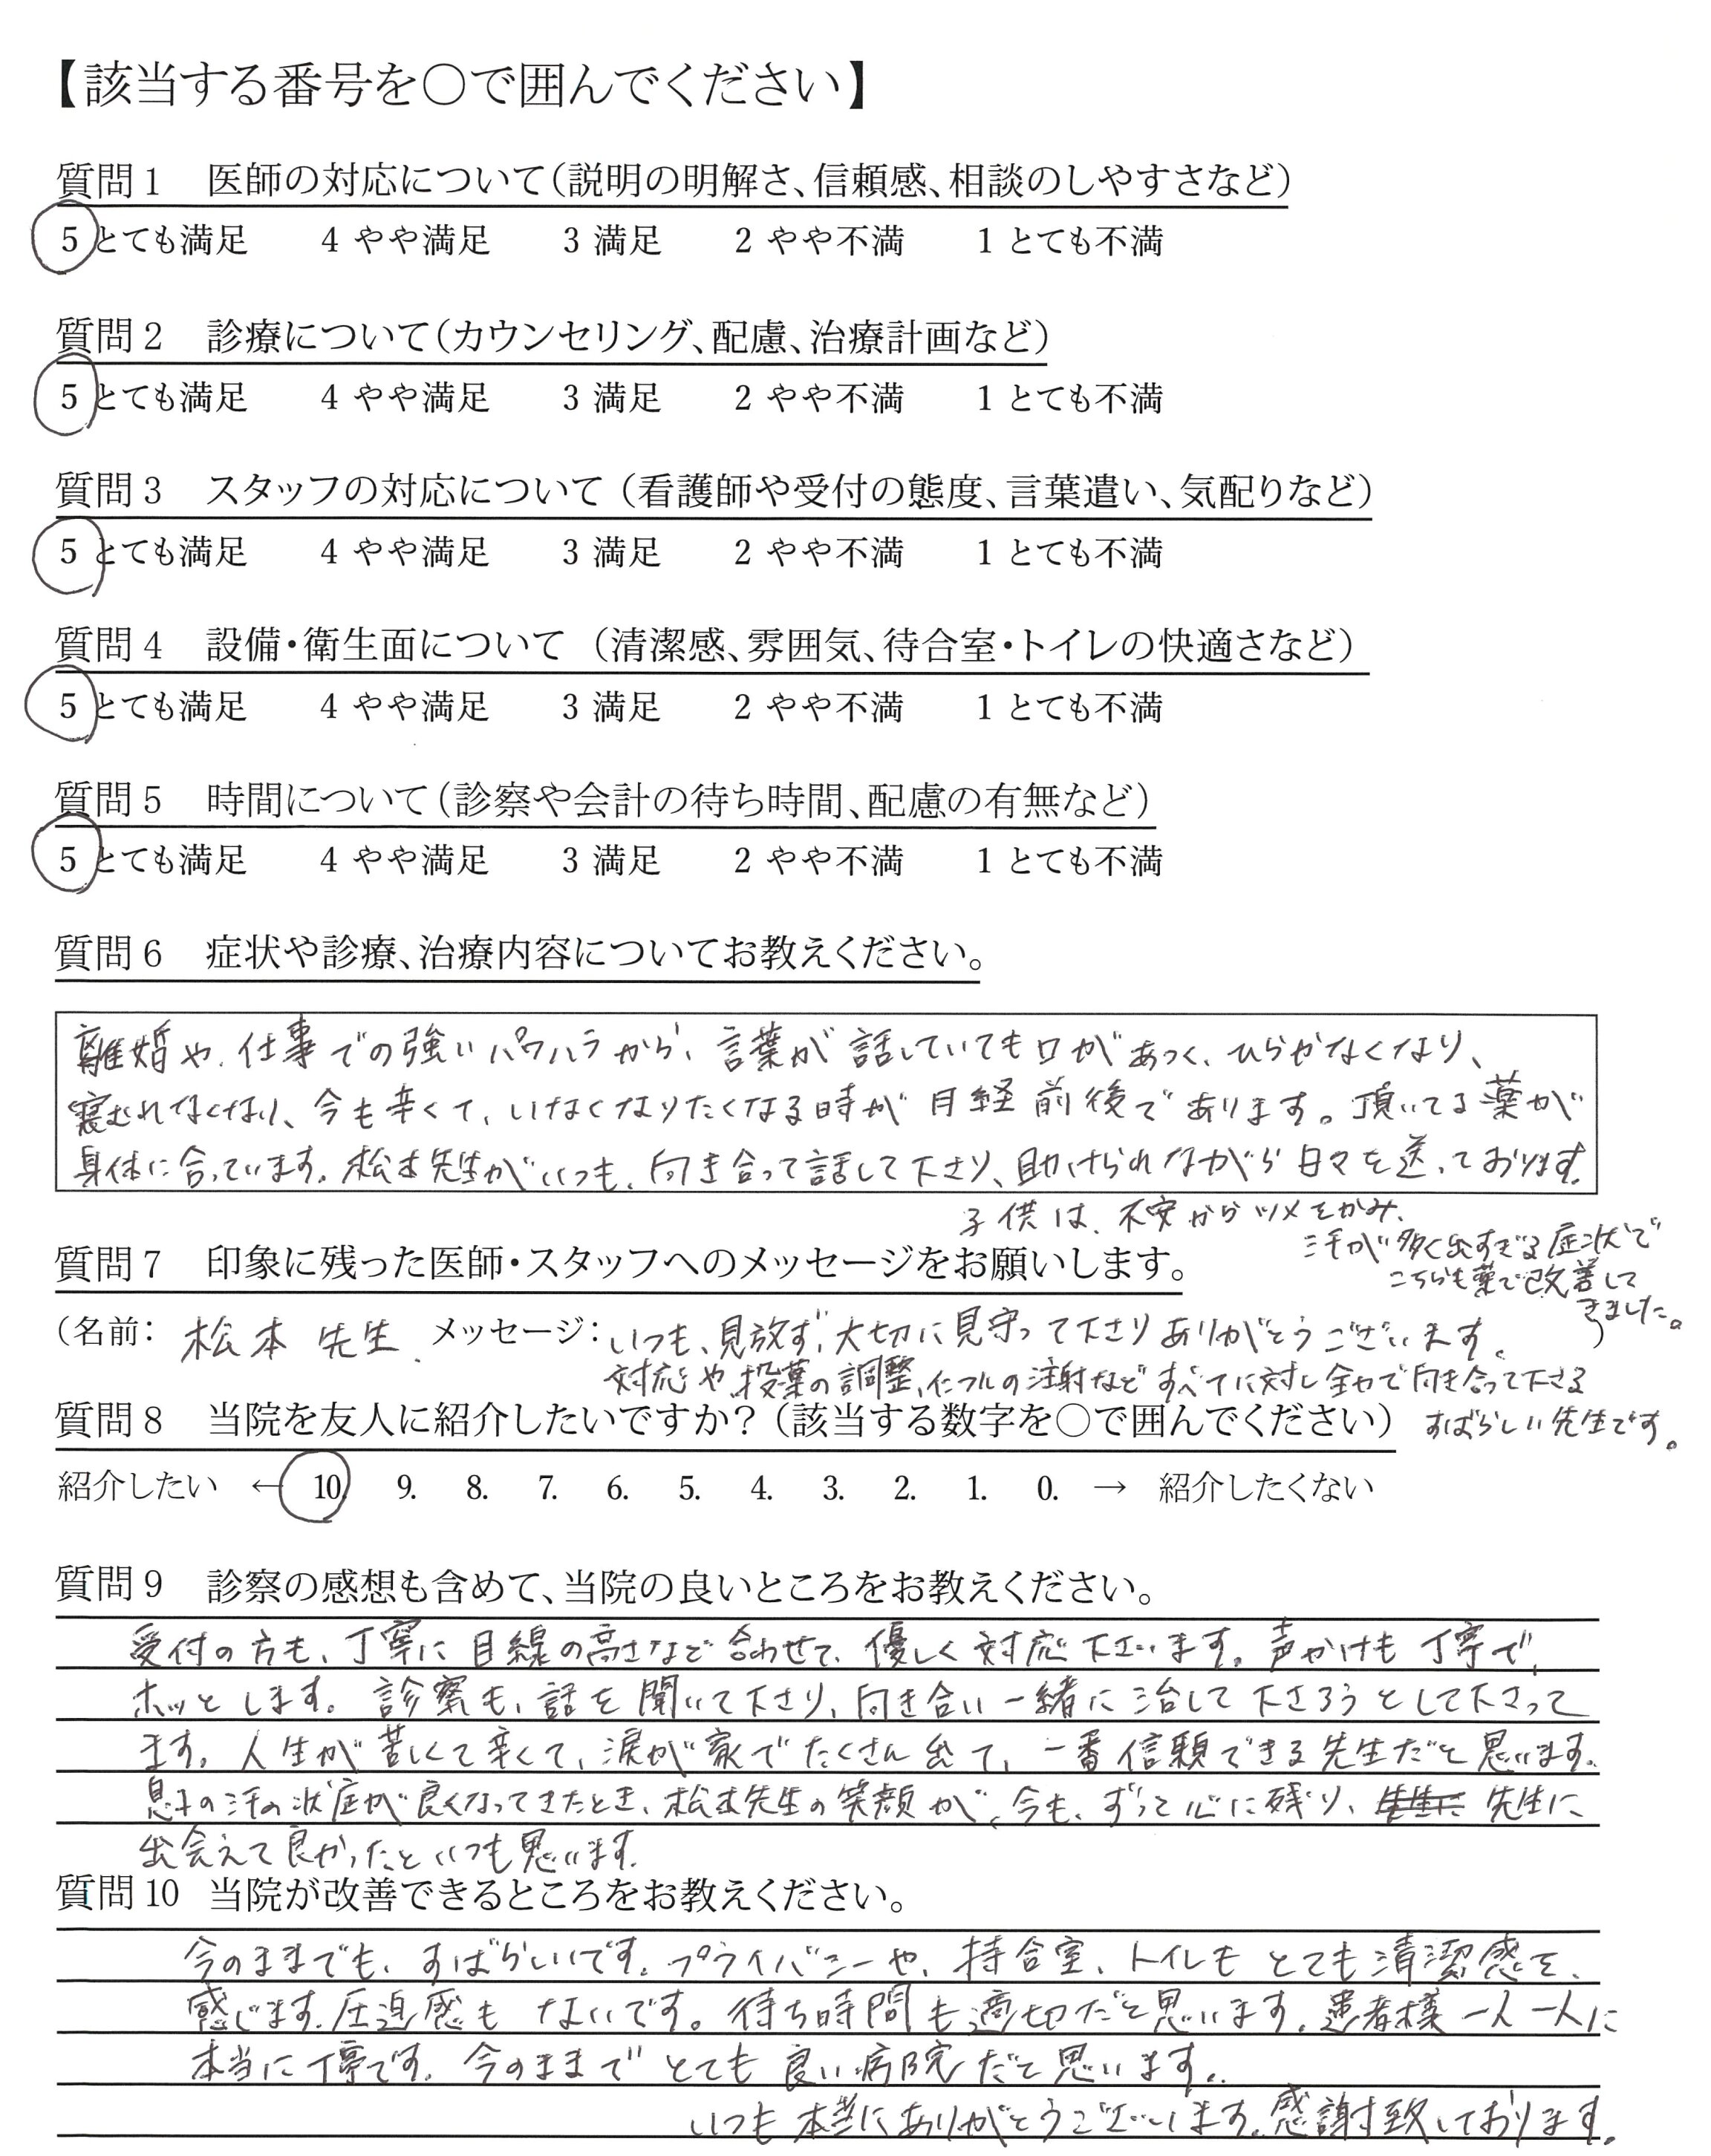 【該当する番号を〇で囲んでください】
質問1 医師の対応について(説明の明解さ、信頼感、相談のしやすさなど)
5 とても満足 4 やや満足 3 満足 2 やや不満 1 とても不満
質問2 診療について(カウンセリング、配慮、治療計画など)
5 とても満足 4 やや満足 3 満足 2 やや不満 1 とても不満
質問3 スタッフの対応について(看護師や受付の態度、言葉遣い、気配りなど)
5 とても満足 4 やや満足 3 満足 2 やや不満 1 とても不満
質問4 設備・衛生面について(清潔感、雰囲気、待合室・トイレの快適さなど)
5 とても満足 4 やや満足 3 満足 2 やや不満 1 とても不満
質問5 時間について(診察や会計の待ち時間、配慮の有無など)
5 とても満足 4 やや満足 3 満足 2 やや不満 1 とても不満
質問6 症状や診療、治療内容についてお教えください。
離婚や、仕事での強いパワハラから、言葉が話していても口があつく、ひらかなくなり、
寝むれなくなり、今も辛くて、いなくなりたくなる時が月経前後であります。頂いてる薬が
身体に合っています。松本先生がいつも、向き合って話して下さり、助けられながら日々を送っております。
子供は、不安からツメをかみ、
汗が多く出すぎる症状で
こちらも薬で改善して
きました。
質問7 印象に残った医師・スタッフへのメッセージをお願いします。
(名前: 松本 先生. メッセージ:いつも、見放ず、大切に見守って下さりありがとうございます。)
対応や、投薬の調整、インフルの注射などすべてに対し全力で向き合って下さる
すばらしい先生です。
質問8 当院を友人に紹介したいですか?(該当する数字を〇で囲んでください)
紹介したい ← 10. 9. 8. 7. 6. 5. 4. 3. 2. 1. 0. → 紹介したくない
質問9 診察の感想も含めて、当院の良いところをお教えください。
受付の方も、丁寧に目線の高さなど合わせて、優しく対応下さいます。声かけも丁寧で、
ホッとします。診察も、話を聞いて下さり、向き合い一緒に治して下さろうとして下さって
ます。人生が苦しくて辛くて、涙が家でたくさん出て、一番信頼できる先生だと思います。
息子の汗の状症が良くなってきたとき、松本先生の笑顔が、今も、ずっと心に残り、先生に
出会えて良かったといつも思います。
質問10 当院が改善できるところをお教えください。
今のままでも、すばらしいです。プライバシーや、持合室、トイレもとても清潔感を、
感じます。圧迫感もないです。待ち時間も適切だと思います。患者様一人一人に
本当に丁寧です。今のままでとても良い病院だと思います。
いつも本当にありがとうございます。感謝致しております。